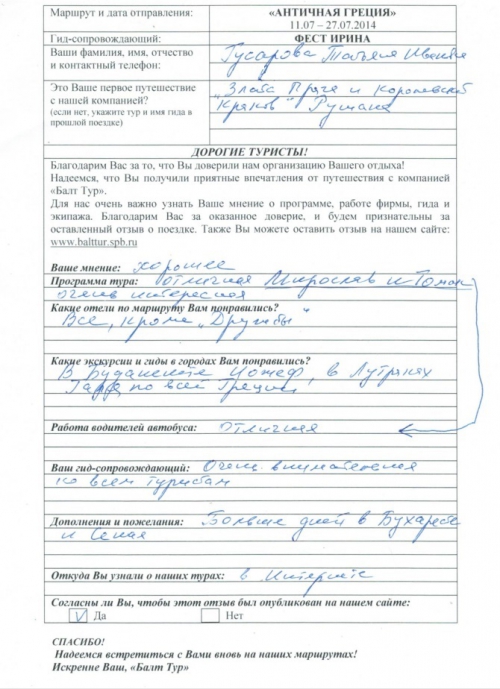 Маршрут и дата отправления:
«АНТИЧНАЯ ГРЕЦИЯ»
11.07 – 27.07.2014
Гид-сопровождающий:
ФЕСТ ИРИНА
Ваши фамилия, имя, отчество
и контактный телефон:
Гусарова Татьяна
Это Ваше первое путешествие
с нашей компанией?
(если нет, укажите тур и имя гида в
прошлой поездке)
„Злата Прага и королевский
Краков"
ДОРОГИЕ ТУРИСТЫ!
Благодарим Вас за то, что Вы доверили нам организацию Вашего отдыха!
Надеемся, что Вы получили приятные впечатления от путешествия с компанией
«Балт Тур».
Для нас очень важно узнать Ваше мнение о программе, работе фирмы, гида и
экипажа. Благодарим Вас за оказанное доверие, и будем признательны за
оставленный отзыв о поездке. Также Вы можете оставить отзыв на нашем сайте:
www.balttur.spb.ru
Ваше мнение: хорошее
Программа тура: отличная Мирослав и Томаш
очень интересная
Какие отели по маршруту Вам понравились?
Все, кроме „Дружбы"
Какие экскурсии и гиды в городах Вам понравились?
В Будапеште Йожеф, в
по всей Греции
Работа водителей автобуса: отличная
Ваш гид-сопровождающий: Очень внимательная
ко всем туристам
Дополнения и пожелания: Больше дней в Бухаресте
и
Откуда Вы узнали о наших турах: в Интернете
Согласны ли Вы, чтобы этот отзыв был опубликован на нашем сайте:
V Да Нет
СПАСИБО!
Надеемся встретиться с Вами вновь на наших маршрутах!
Искренне Ваш, «Балт Тур»